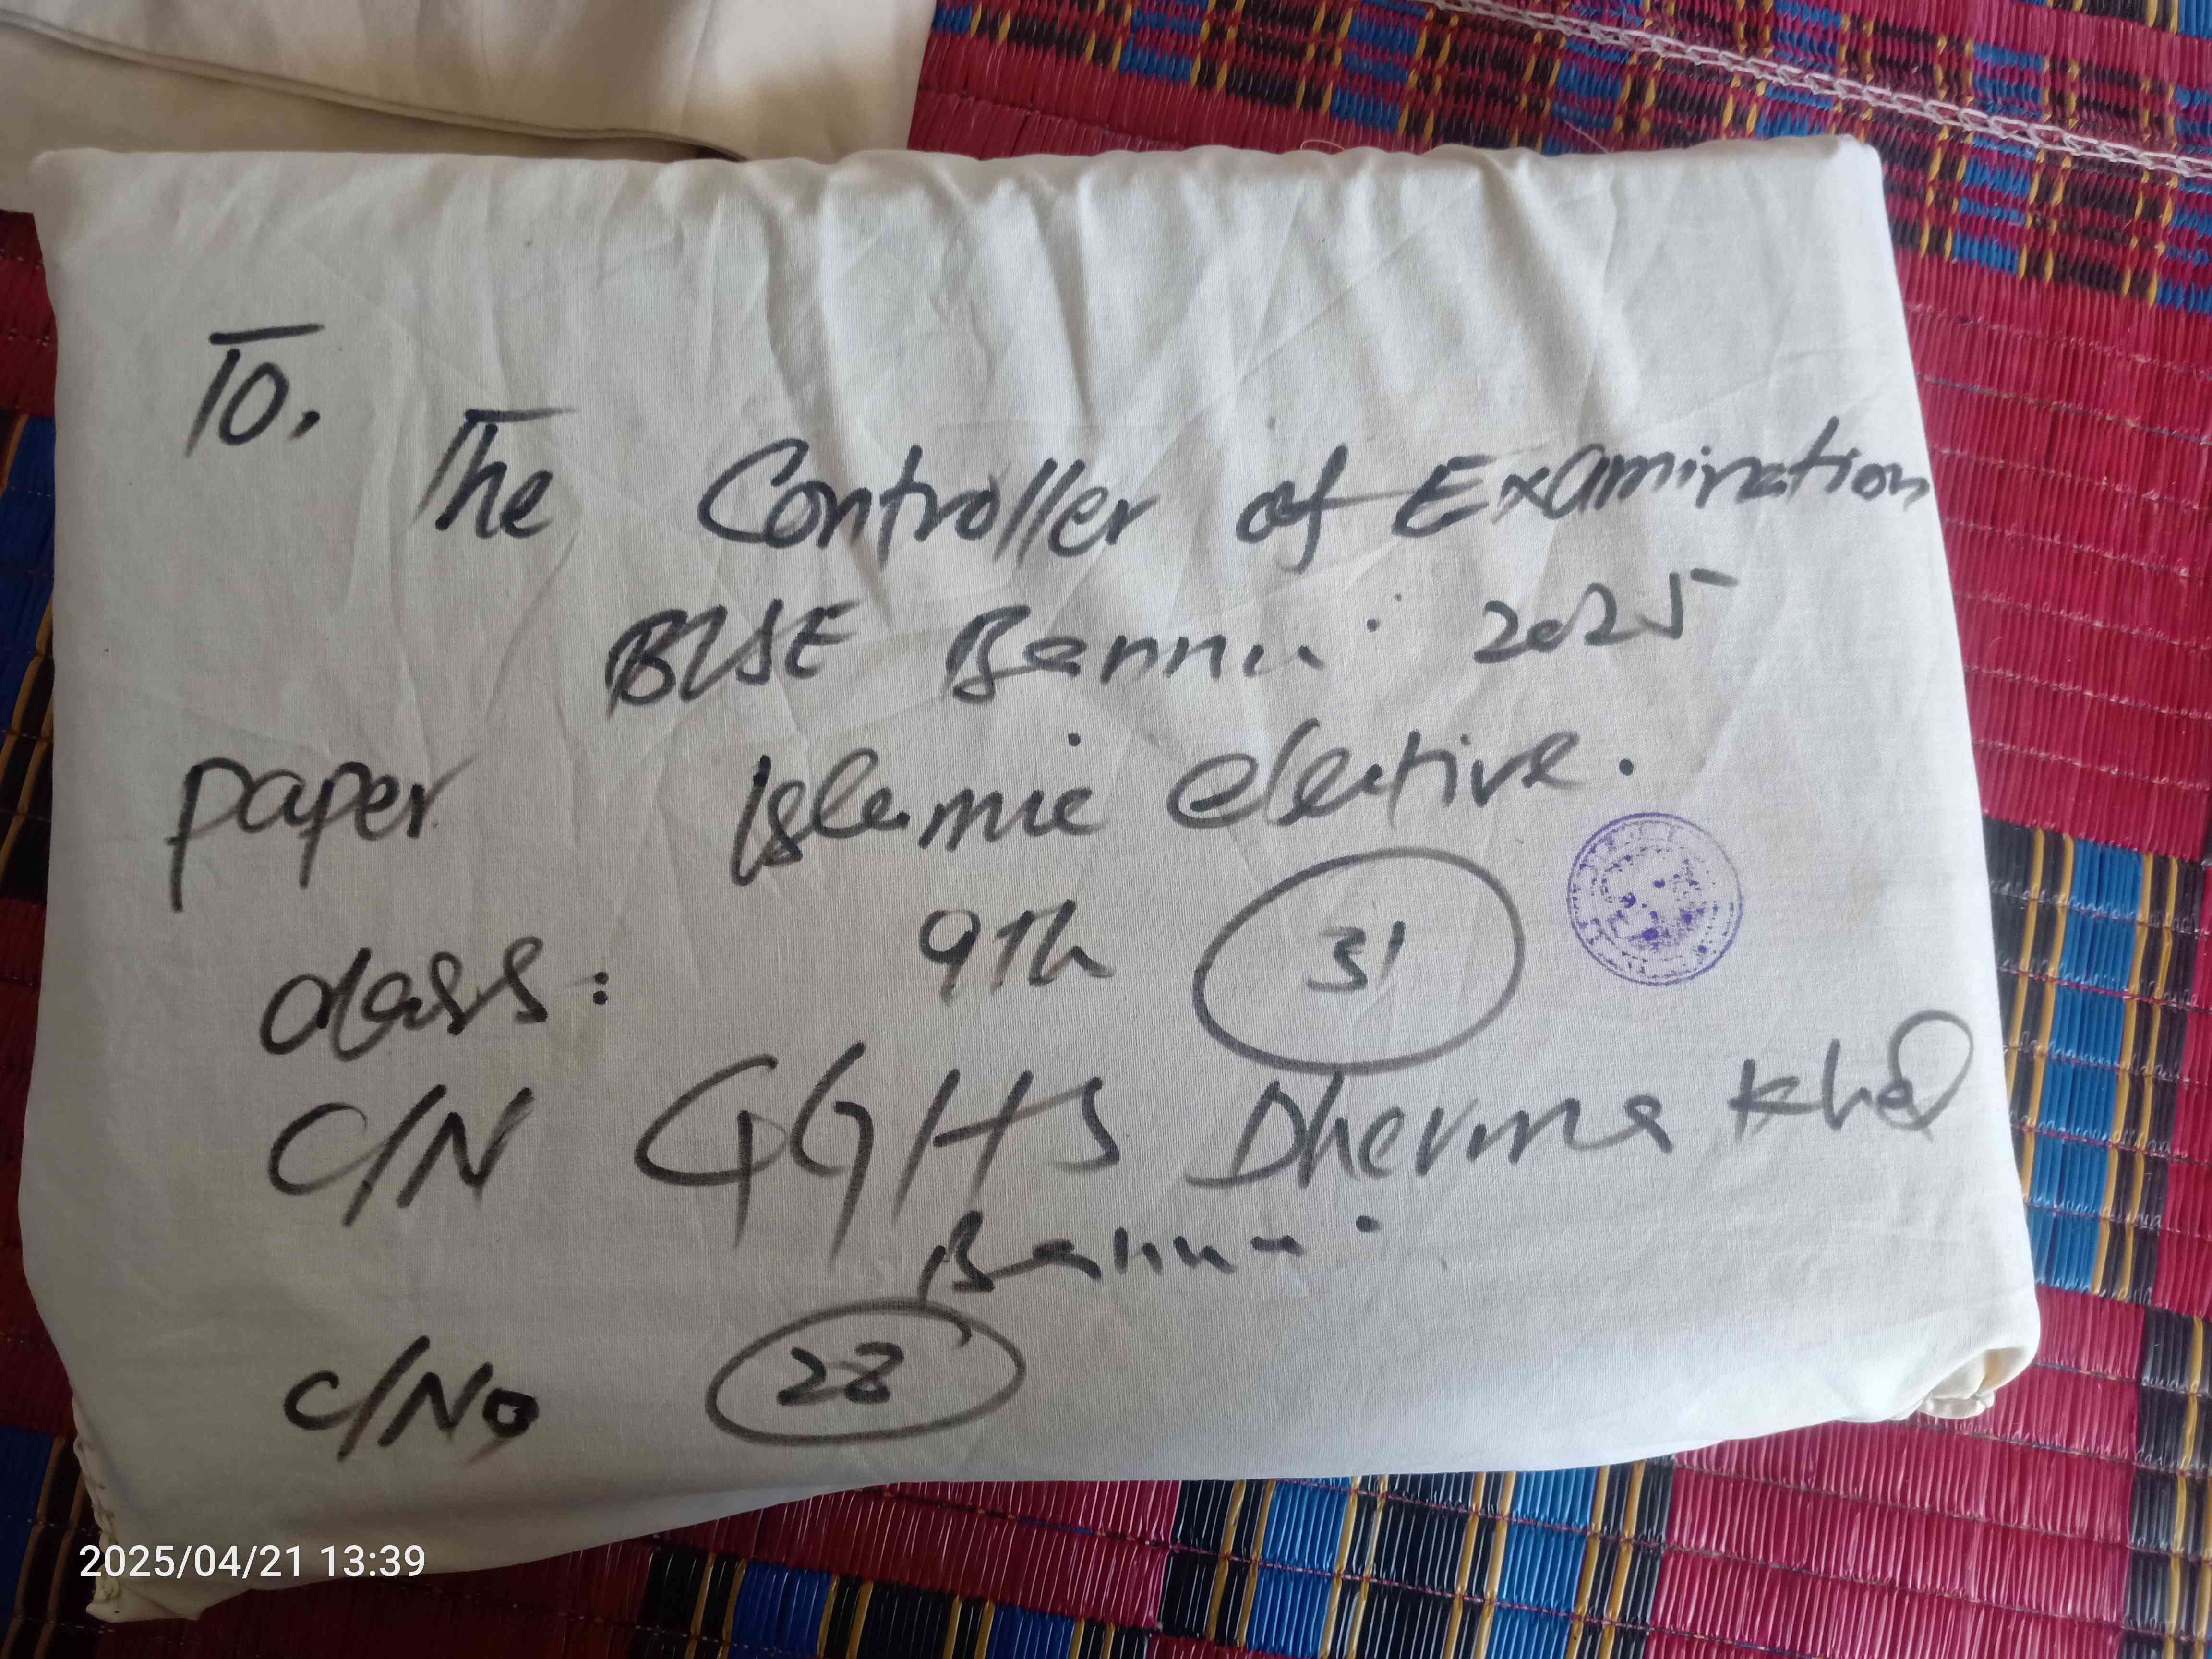 To,
The Controller of Examination
BISE Bannu 2025
paper Islamic elective.
class: 9th 31
C/N GGHS Dherma Khel
Bannu
C/No 28
2025/04/21 13:39